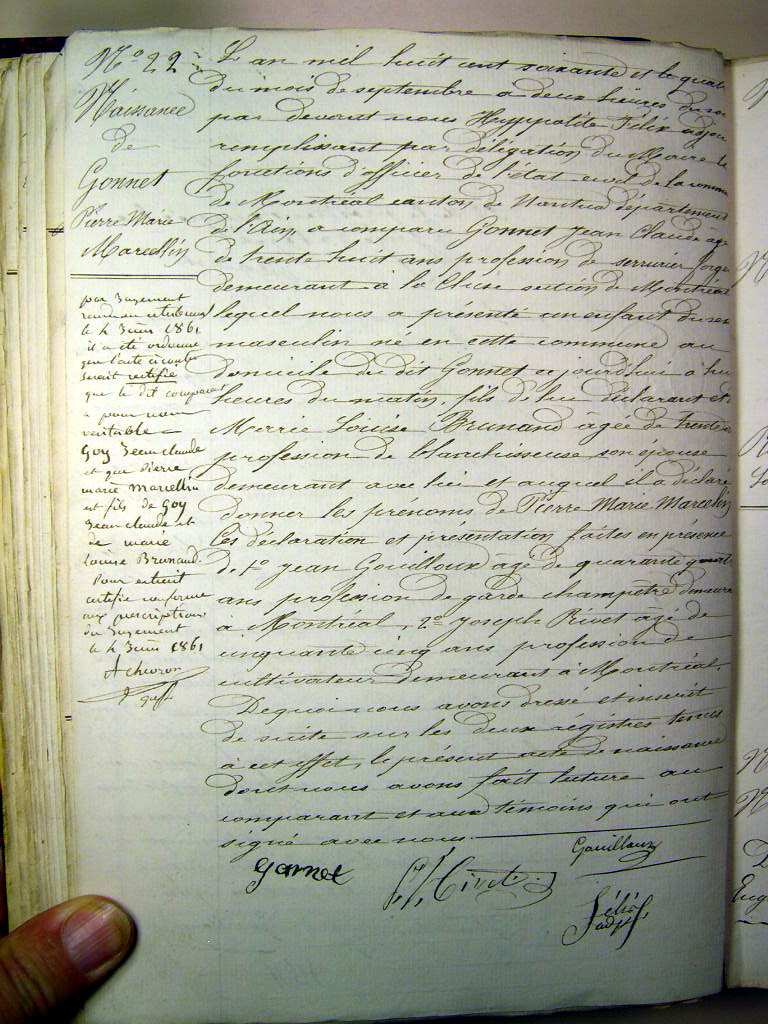 N° 22
Naissance
de
Gonnet
Pierre Marie
Marcellin
par Jugement
rendu au tribunal
le 4 Juin 1861
il a été ordonné
que l'acte ci contre
serait rectifié
que le dit comparant
a pour nom
veritable
Goy Jean claude
et que Pierre
marie marcellin
est fils de Goy
Jean claude et
de marie
Louise Brunand.
Pour extrait
certifié conforme
aux prescriptions
du Jugement
le 4 Juin 1861
L'an mil huit cent soixante et le quat
du mois de septembre à deux heures du soir
par devant nous Hyppolite Félix adjoi
remplissant par délégation du Maire les
fonctions d'officier de l'état civil de la commu
de Montréal canton de Nantua département
de l'Ain, a comparu Gonnet Jean Claude âgé
de trente huit ans profession de serrurier forge
demeurant à la Cluse section de Montréal
lequel nous a présenté un enfant du sexe
masculin né en cette commune au
domicile du dit Gonnet ce jourd'hui à hu
heures du matin, fils de lui déclarant et de
Marie Louise Brunand âgée de trente
profession de blanchisseuse son épouse
demeurant avec lui et auquel il a déclaré
donner les prénoms de Pierre Marie Marcelin
Ces déclaration et présentation faites en présence
de 1° Jean Gouilloux âgé de quarante quat
ans profession de garde champêtre demeura
à Montréal, 2° Joseph Rivet âgé de
cinquante cinq ans profession de
cultivateur demeurant à Montréal.
De quoi nous avons dressé et inscrit
de suite sur les deux régistres tenus
à cet effet, le présent acte de naissance
dont nous avons fait lecture au
comparant et aux témoins qui ont
signé avec nous.
gonnet
Gouilloux
Félix
adj